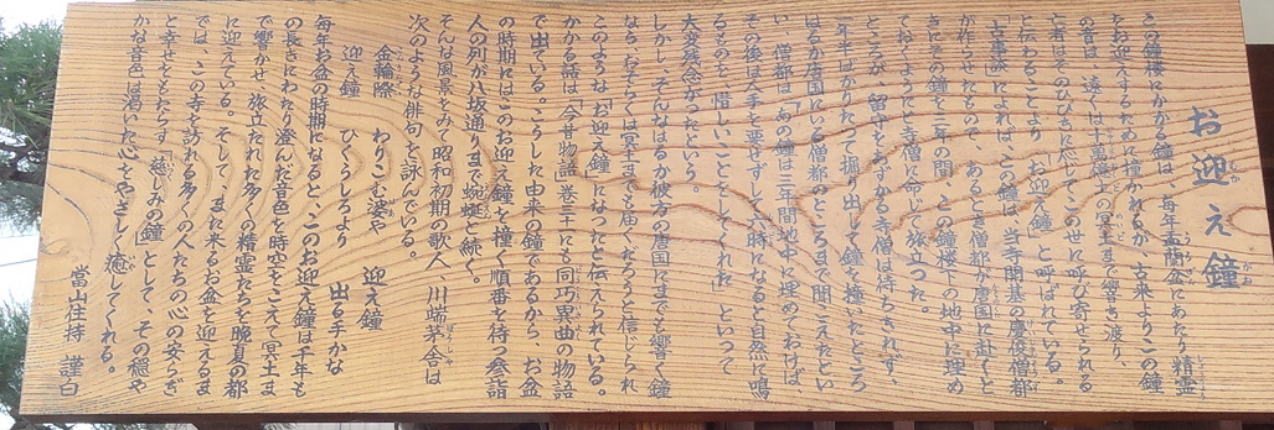 お迎え鐘
この鐘楼にかかる鐘は、毎年盂蘭盆にあたり精霊
をお迎えするために撞かれるが、古来よりこの鐘
の音は、遠くは十萬億土の冥土まで響き渡り、
亡者はそのひびきに応じてこの世に呼び寄せられる
と伝わることより「お迎え鐘」と呼ばれている。
「古事談」によれば、この鐘は、当寺開基の慶俊僧都
が作らせたもので、あるとき僧都が唐国に赴くと
きにその鐘を三年の間、この鐘楼下の地中に埋め
ておくようにと寺僧に命じて旅立った。
ところが、留守をあずかる寺僧は待ちきれず、
一年半ばかりたって掘り出して鐘を撞いたところ
はるか唐国にいる僧都のところまで聞こえたとい
い、僧都は「あの鐘は三年間地中に埋めておけば、
その後は人手を要せずして六時になると自然に鳴
るものを、惜しいことをしてくれた」といって
大変残念がったという。
しかし、そんなはるか彼方の唐国にまでも響く鐘
なら、おそらくは冥土までも届くだろうと信じられ
このような「お迎え鐘」になったと伝えられている。
かかる話は「今昔物語」巻三十一にも同巧異曲の物語
で出ている。こうした由来の鐘であるから、お盆
の時期にはこのお迎え鐘を撞く順番を待つ参詣
人の列が八坂通りまで蜿蜒と続く。
そんな風景をみて昭和初期の歌人、川端茅舎は
次のような俳句を詠んでいる。
金輪際 わりこむ婆や 迎え鐘
迎え鐘 ひくうしろより 出る手かな
毎年お盆の時期になると、このお迎え鐘は千年も
の長きにわたり澄んだ音色を時空をこえて冥土ま
で響かせ、旅立たれた多くの精霊たちを晩夏の都
に迎えている。そして、また来るお盆を迎えるま
では、この寺を訪れる多くの人たちの心の安らぎ
と幸せをもたらす「慈しみの鐘」として、その穏や
かな音色は渇いた心をやさしく癒してくれる。
當山住持 謹白